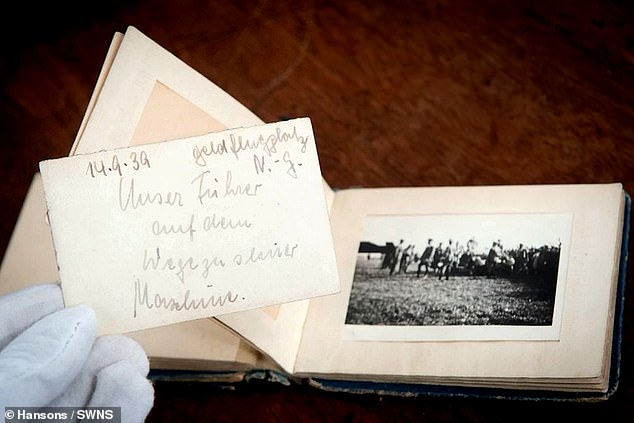 14.9.39 Feldflugplatz
N.-G.
Unser Führer
auf dem
Wege zu seiner
Maschine.
© Hansons / SWNS